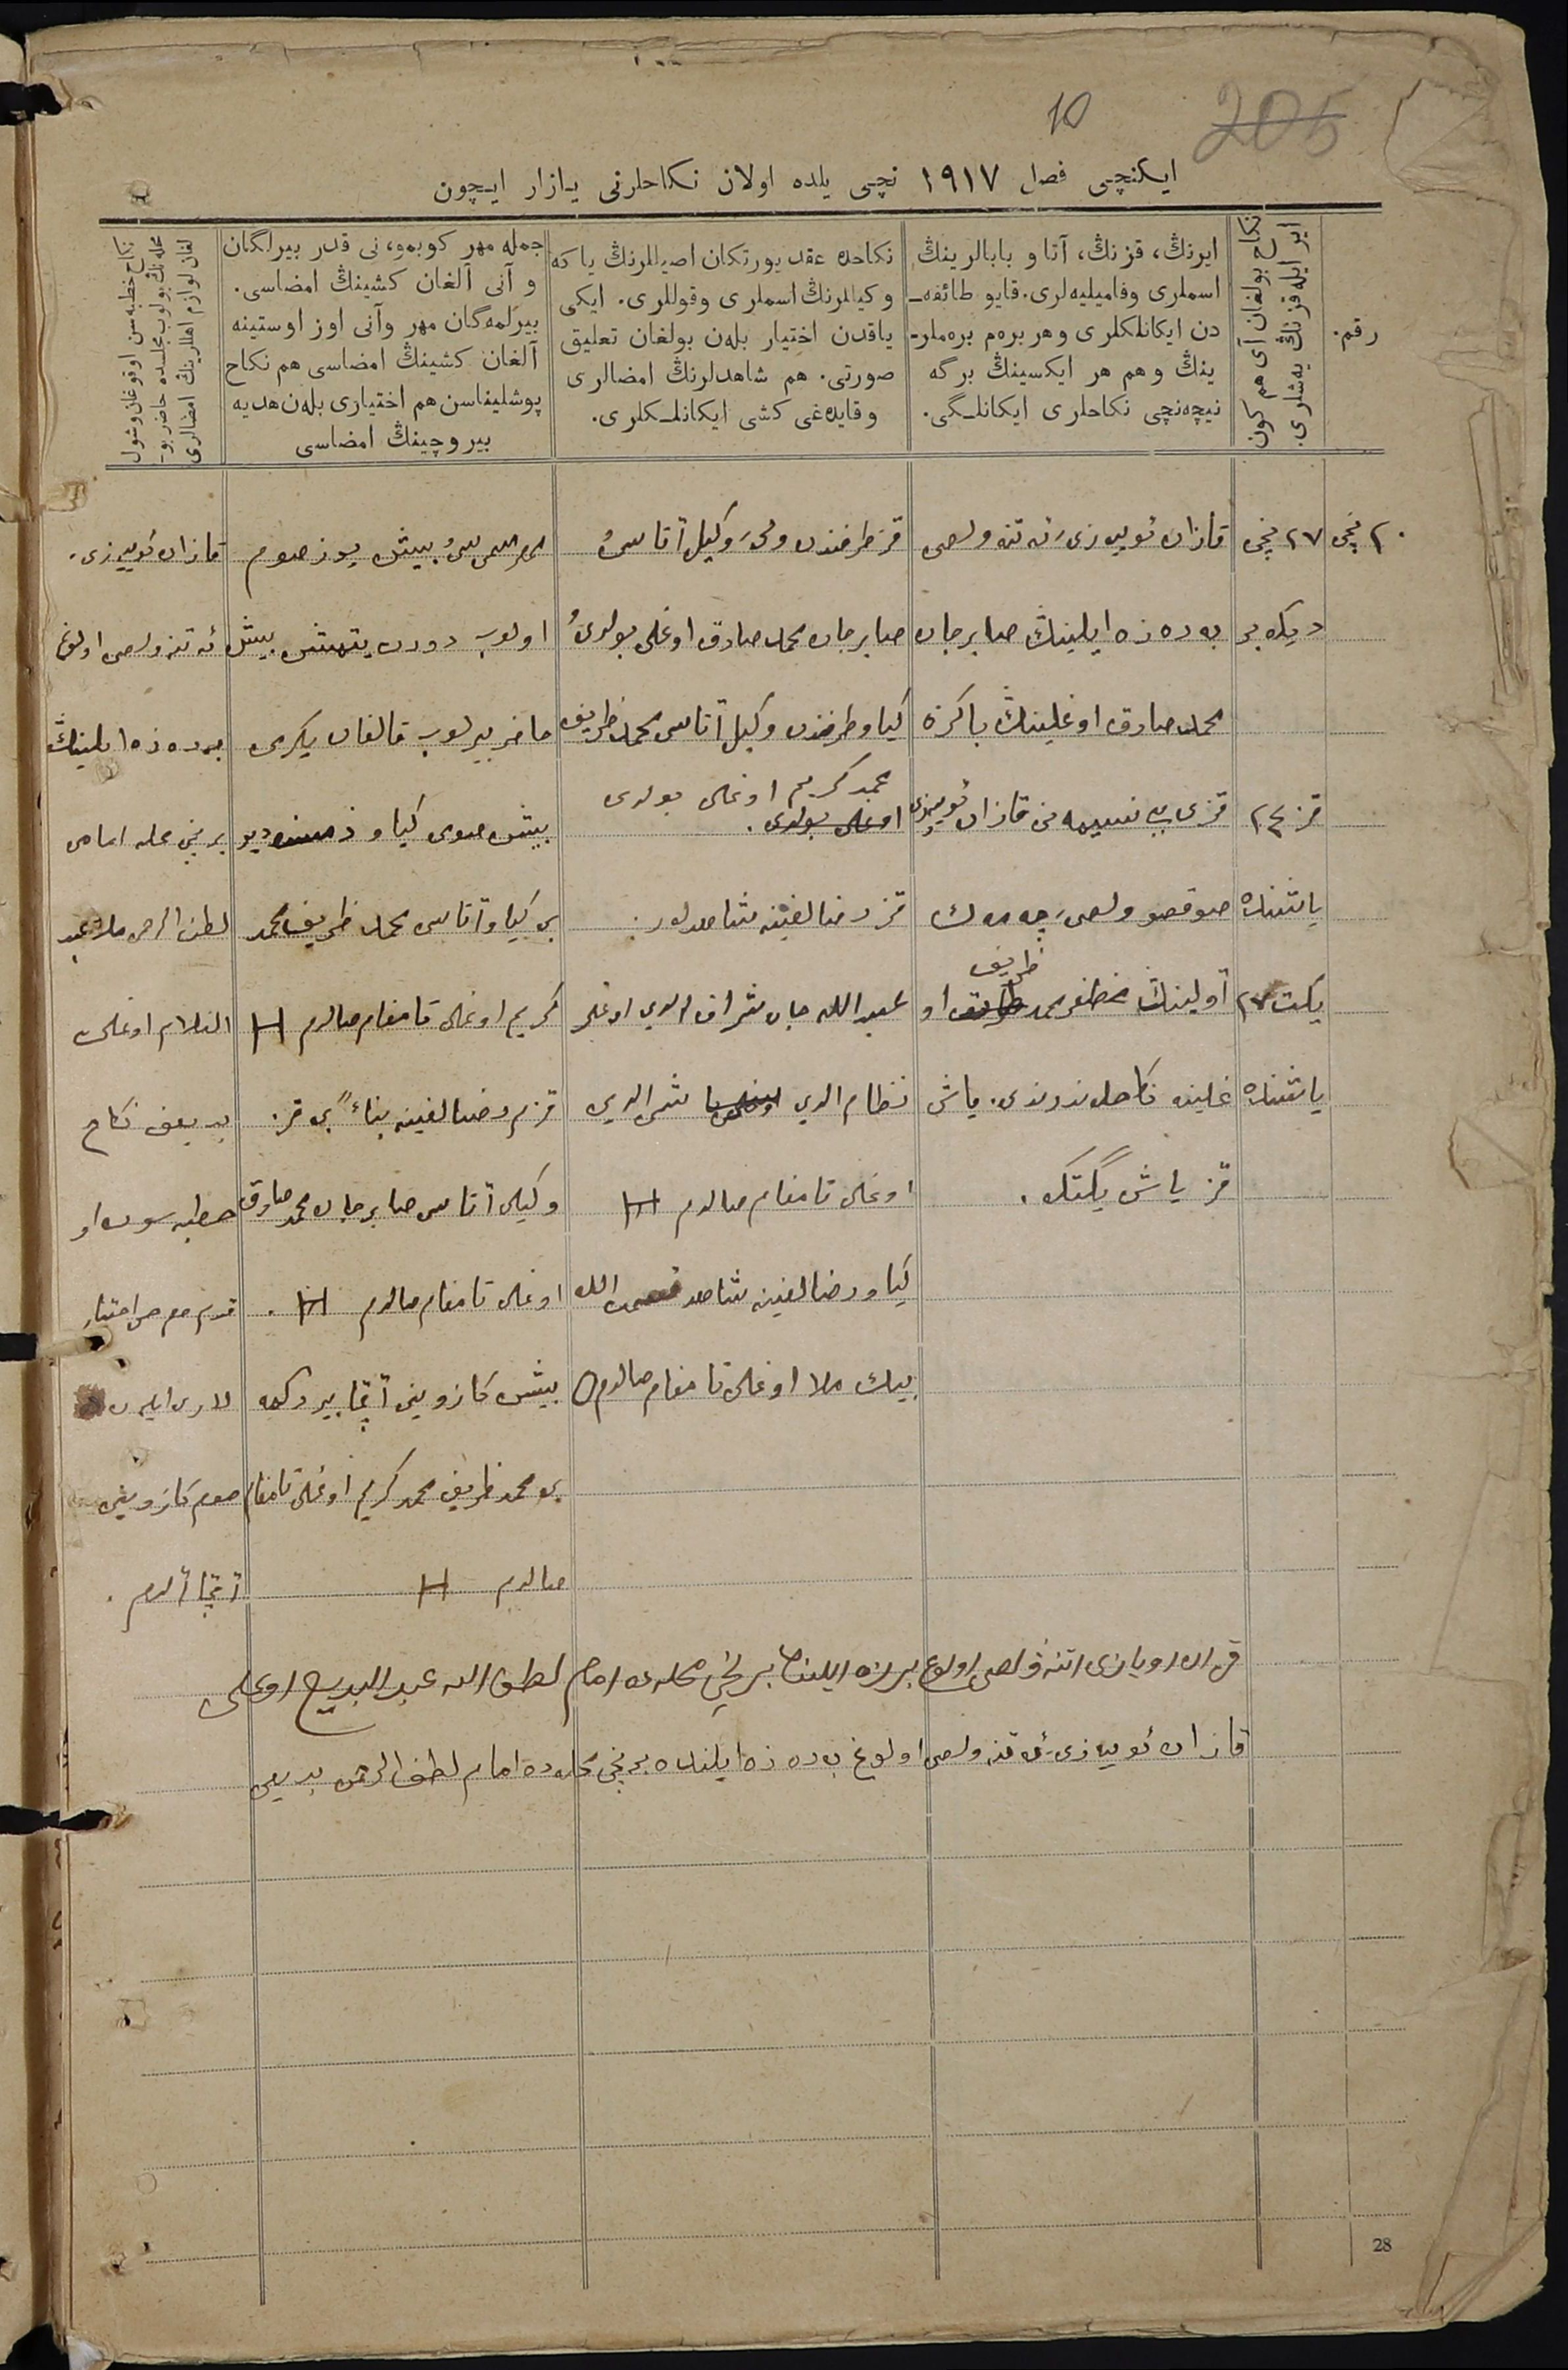 10
205
ایکنچی فصل ۱۹۱۷ نچی یلده اولان نکاحلرنی یازار ایچون
رقم.
نکاح بولغان آی هم کون
ایر ایله قزنڭ یه‌شلری.
ایرنڭ، قزنڭ، آتا و بابالرینڭ
اسملری وفامیلیه‌لری. قایو طائفه‌ـ
دن ایکانلکلری و هر بره‌م بره‌ملرـ
ینڭ و هم هر ایکسینڭ برگه
نیچه‌نچی نکاحلری ایکانلـگی.
نکاحده عقد یورتکان اصیللرنڭ یا که
وکیللرنڭ اسملری وقوللری. ایکی
یاقدن اختیار بله‌ن بولغان تعلیق
صورتی. هم شاهدلرنڭ امضالری
و قایده‌غی کشی ایکانلـکلری.
جمله مهر کوبمو، نی قدر بیرلگان
و آنی آلغان کشینڭ امضاسی.
بیرلمه‌گان مهر وآنی اوز اوستینه
آلغان کشینڭ امضاسی هم نکاح
پوشلیناسن هم اختیاری بله‌ن هدیه
بیروچینڭ امضاسی
نکاح خطبه‌سن اوقوغان وشول
محله‌نڭ بولوب مجلسده حاضر بوـ
لغان لوازم اهللرینڭ امضالری
۲۰ نچی
۲۷ نچی
دیکه بر
قز ۲۴
یاشنده
یکت ۲۷
یاشنده
قازان ئویه‌زی ئه‌تنه ولصی
به‌ره‌زه ایلینڭ صابرجان
محمد صادق اوغلینڭ باکره
قزی بی‌بی نسیمه‌نی قازان ئویه‌زی
صوقصو ولصی
آولینڭ مظفر محمد ظریف او
غلینه نکاحلندرندی. یاش
قز یاش یگتکه.
قز طرفندن ولی وکیل آتاسی
صابرجان محمد صادق اوغلی بولدی
کیاو طرفندن وکیل آتاسی محمد ظریف
محمد کریم اوغلی بولدی
اوغلی بولدی.
قز رضالغینه شاهدلر:
عبدالله جان شراف الدین اوغلی
نظام الدین شمس الدین
اوغلی تامغام صالدم H
کیاو رضالغینه شاهد الله
بیك ملا اوغلی تامغام صالدم
بیش یوز صوم
اولوب دورت یتمش بیش
حاضر بیرلوب قالغان یکرمی
بیش صوم کیاو ذمه‌سنده‌دیر
بی کیاو آتاسی محمد ظریف محمد
کریم اوغلی تامغام صالدم H
قزم رضالغینه بناءً بی قز
وکیلی آتاسی صابرجان محمد صادق
اوغلی تامغام صالدم H.
بیش کازوینی آقچا بیردکمه
بی محمد ظریف محمد کریم اوغلی تامغام
صالدم H
قازان ئویه‌زی.
ئه‌تنه ولصی اولوغ
به‌ره‌زه ایلینڭ
برنچی محله امامی
لطف الرحمن ملا عبد
السلام اوغلی
بدیعی نکاح
خطبه‌سن او
قدم هم اختیار
لاری ایله
صوم کازوینی
آقچا آلدم.
قزان اویازی اتنه ولصی اولوغ برزه ایلنده برنچی محله‌ده امام لطف الله عبد البدیع اوغلی
قازان ئویه‌زی ئه‌تنه ولصی اولوغ به‌ره‌زه ایلنده برنچی محله‌ده امام لطف الرحمن بدیعی
28